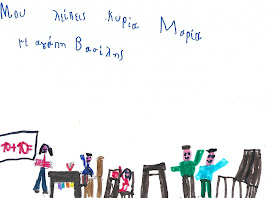 Μου λείπεις κυρία Μαρία
με αγάπη Βασίλης
10+10=